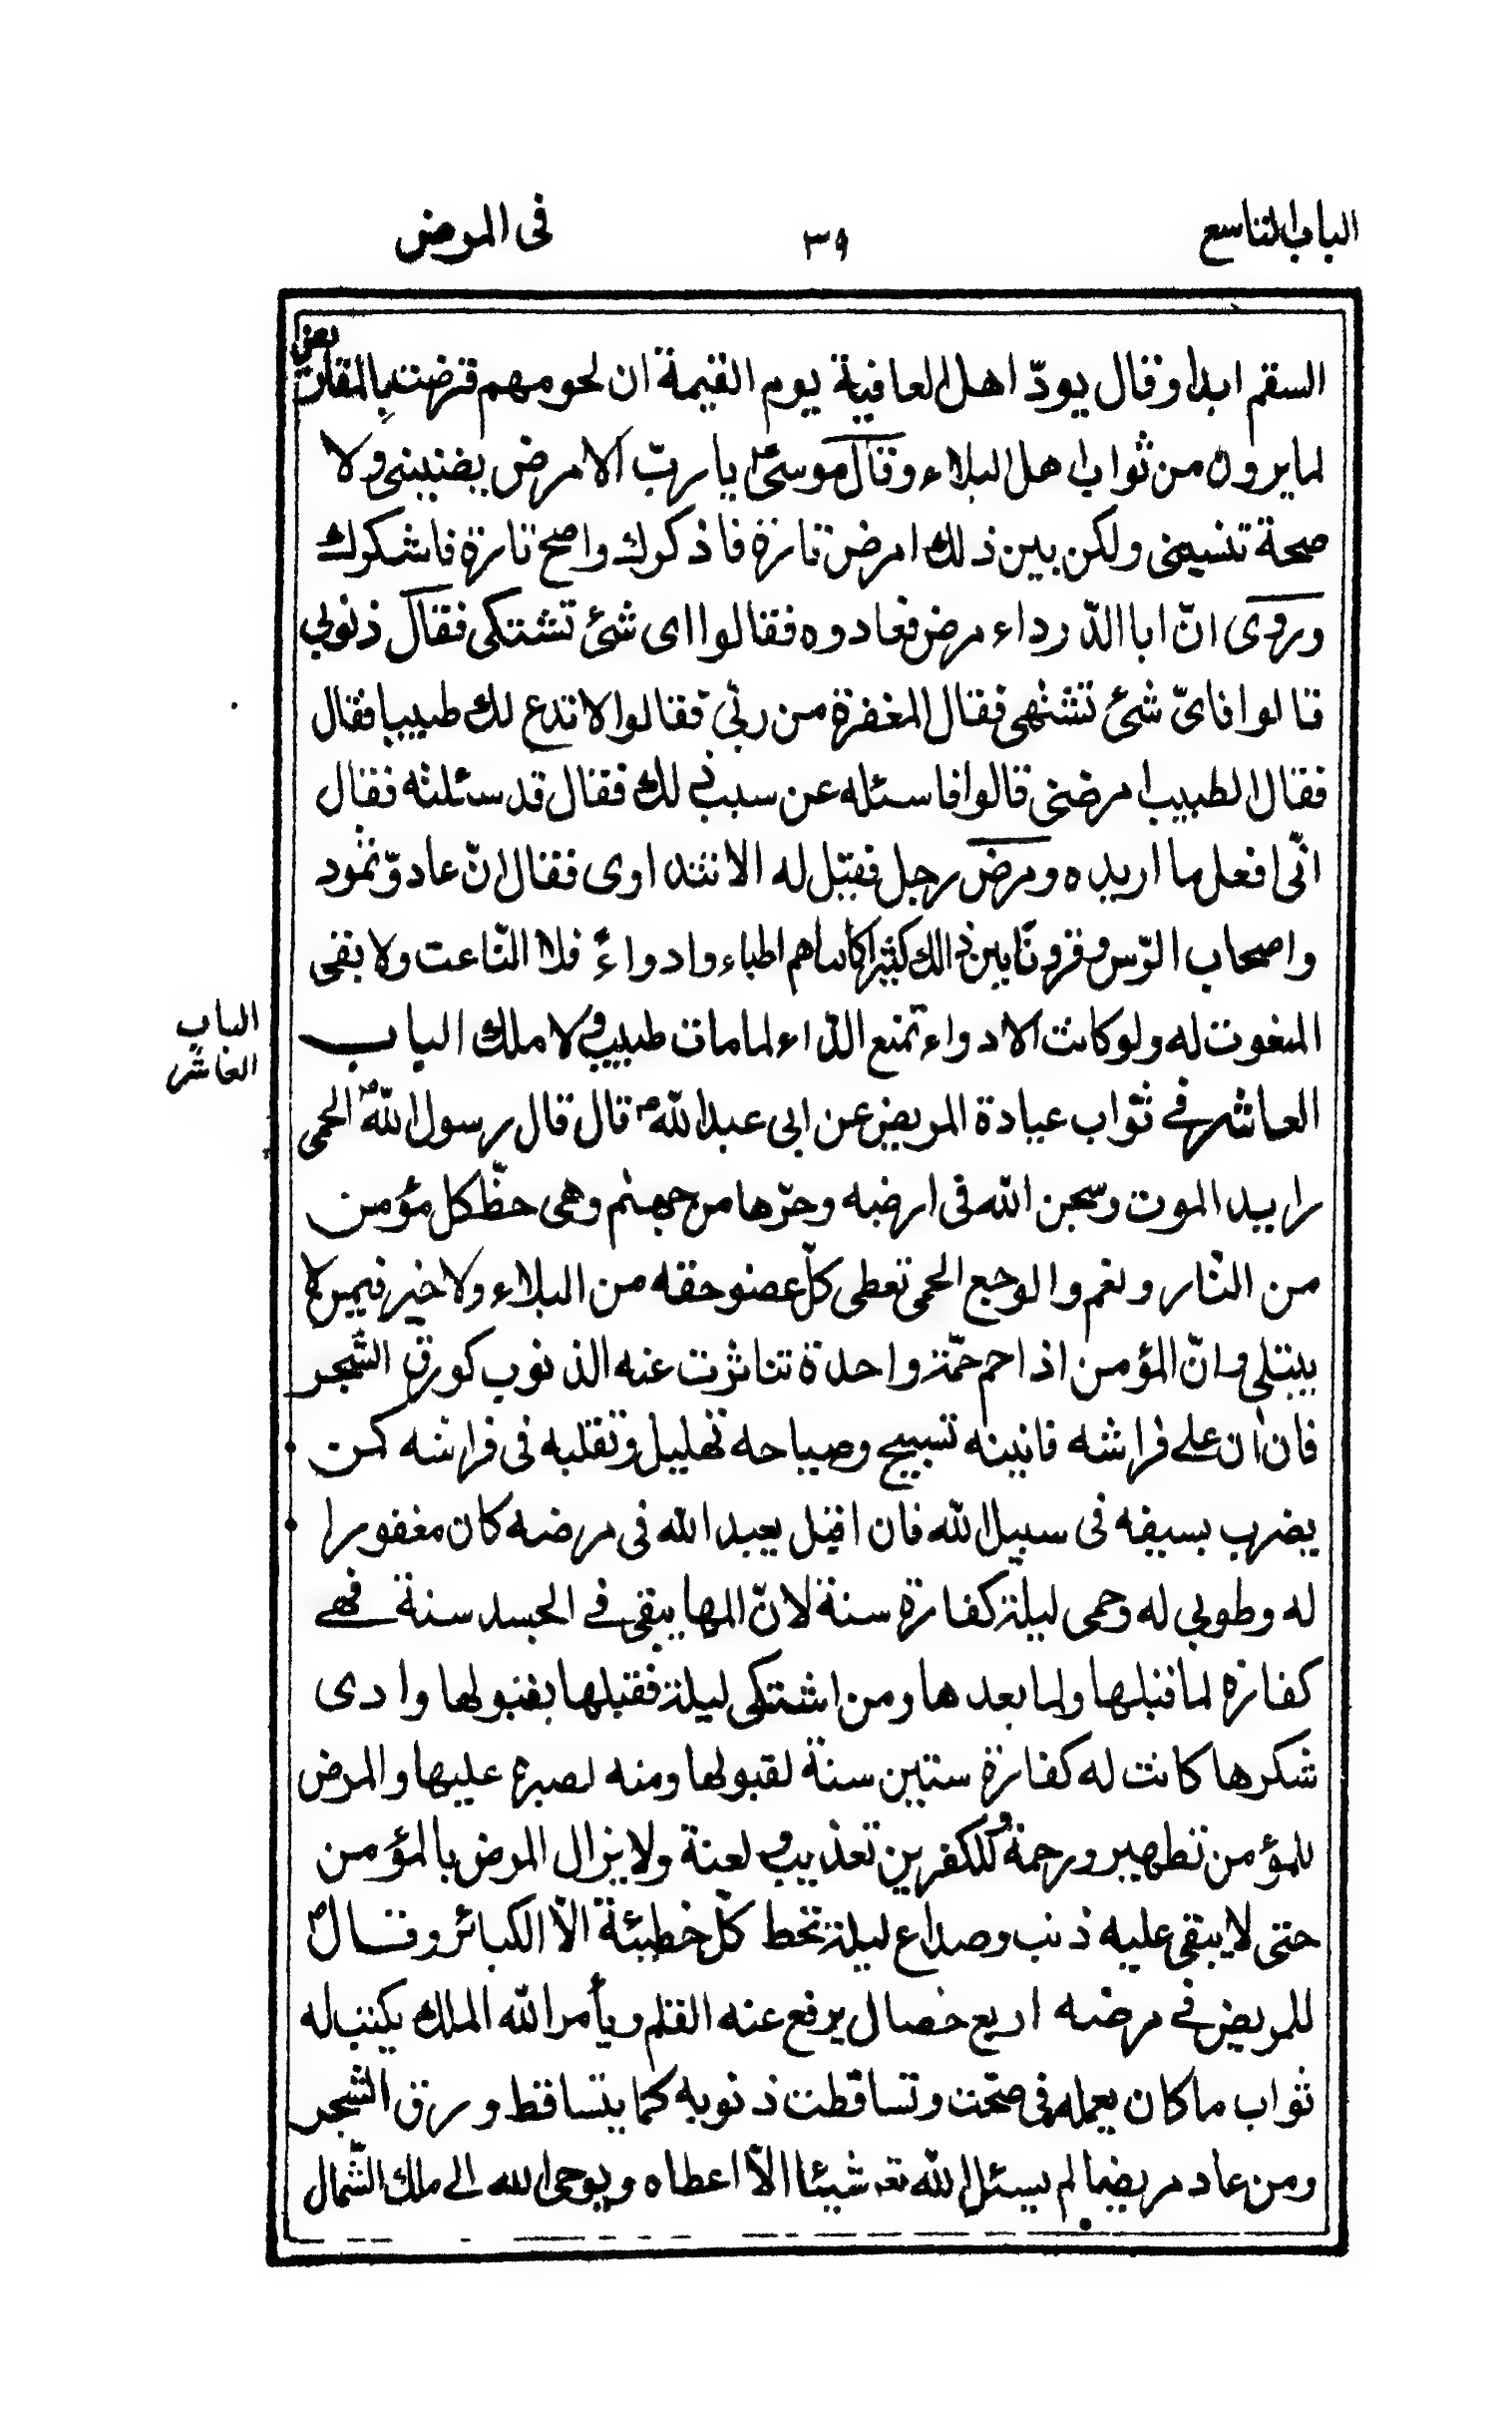 الباب التاسع ٣٩ فى المرض
السقم ابدا وقال يودّ اهل العافية يوم القيمة ان لحومهم قرضت بالمقاريض
لما يرون من ثواب اهل البلاء وقال موسى يا ربّ لا مرض يضنينى ولا
صحة تنسينى ولكن بين ذلك امرض تارة فاذكرك واصح تارة فاشكرك
وروى انّ ابا الدّرداء مرض فعادوه فقالوا اى شئ تشتكى فقال ذنوبى
قالوا فاىّ شئ تشتهى فقال المغفرة من ربّى فقالوا لا ندع لك طبيبا فقال
فقال الطبيب امرضنى قالوا فاسئله عن سبب ذلك فقال قد سئلته فقال
انّى افعل ما اريده ومرض رجل فقيل له الا تتداوى فقال انّ عاد وّثمود
واصحاب الرّس وقرونًا بين ذالك كثيرا كان لهم اطباء وادواءٌ فلا النّاعت ولا بقى
المنعوت له ولو كانت الادواء تمنع الدّاء لما مات طبيب ولا ملك الباب
الباب
العاشر
العاشر فے ثوّاب عيادة المريض عن ابى عبد اللّه قال قال رسول اللّه الحمى
رايد الموت وسجن اللّه فى ارضه وحرّها من جهنم وهى حظّ كل مؤمن
من النّار ونعم والوجع الحمى تعطى كلّ عضو حقه من البلاء ولا خير فيمن لا
يبتلى وانّ المؤمن اذا حم حمّة واحدة تناثرت عنه الذنوب كورق الشّجر
فان انّ على فراشه فانينه تسبيح وصياحه تهليل وتقلبه فى فراشه كمن
يضرب بسيفه فى سبيل اللّه فان اقبل يعبد اللّه فى مرضه كان مغفورا
له وطوبى له وحمى ليلة كفارة سنة لانّ المها يبقى فے الجسد سنة فهے
كفارة لما قبلها ولما بعدها ومن اشتكى ليلة فقبلها بقبولها وادى
شكرها كانت له كفارة ستين سنة لقبولها ومنه لصبره عليها والمرض
للمؤمن تطهير ورحمة وللكفرين تعذيب ولعنة ولا يزال المرض بالمؤمن
حتى لا يبقى عليه ذنب وصداع ليلة تحط كلّ خطيئة الّا الكبائر وقال
للمريض فے مرضه اربع خصال يرفع عنه القلم ويأمر اللّه الملك يكتب له
ثواب ما كان يعمله فى صحّت وتساقطت ذنوبه كما يتساقط ورق الشّجر
ومن عاد مريضا لم يسئل اللّه تعه شيئا الّا اعطاه ويوحى اللّه الى ملك الشّمال